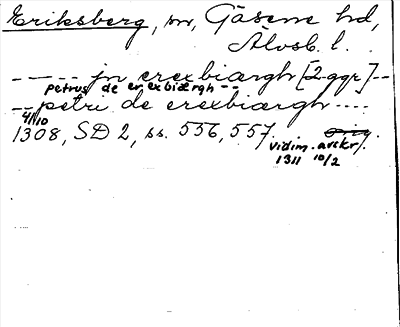 Eriksberg, sn, Gäsene hd,
Älvsb. l.
----- jn erexbiærgh [2 ggr] --
petrus de erexbiærgh --
-- petri de erexbiærgh ----
4/10
1308, SD 2, ss. 556, 557. orig.
vidim. avskr.
1311 10/2